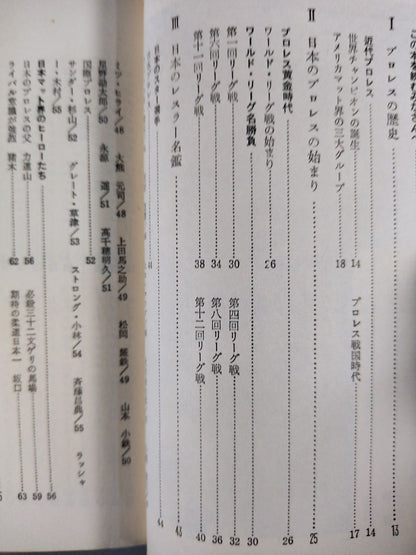 Ⅰ プロレスの歴史……13
近代プロレス……14
世界チャンピオンの誕生……14
プロレス戦国時代……17
アメリカマット界の三大グループ……18
Ⅱ 日本のプロレスの始まり……25
プロレス黄金時代……26
ワールド・リーグ戦の始まり……26
ワールド・リーグ名勝負……30
第一回リーグ戦……30
第四回リーグ戦……32
第六回リーグ戦……34
第八回リーグ戦……36
第十一回リーグ戦……38
第十二回リーグ戦……40
Ⅲ 日本のレスラー名鑑……43
44
ミツ・ヒライ/48
大熊 元司/48
上田馬之助/49
松岡 巌鉄/49
山本 小鉄/50
星野勘太郎/50
永源 遥/51
高千穂明久/51
国際プロレス……52
サンダー・杉山/52
グレート・草津/53
ストロング・小林/54
斉藤昌典/55
ラッシャー・木村/55
日本マット界のヒーローたち……56
日本のプロレスの父 力道山……56
必殺三十二文ゲリの馬場……59
ライバル意識が強烈 猪木……62
期待の柔道日本一 坂口……63